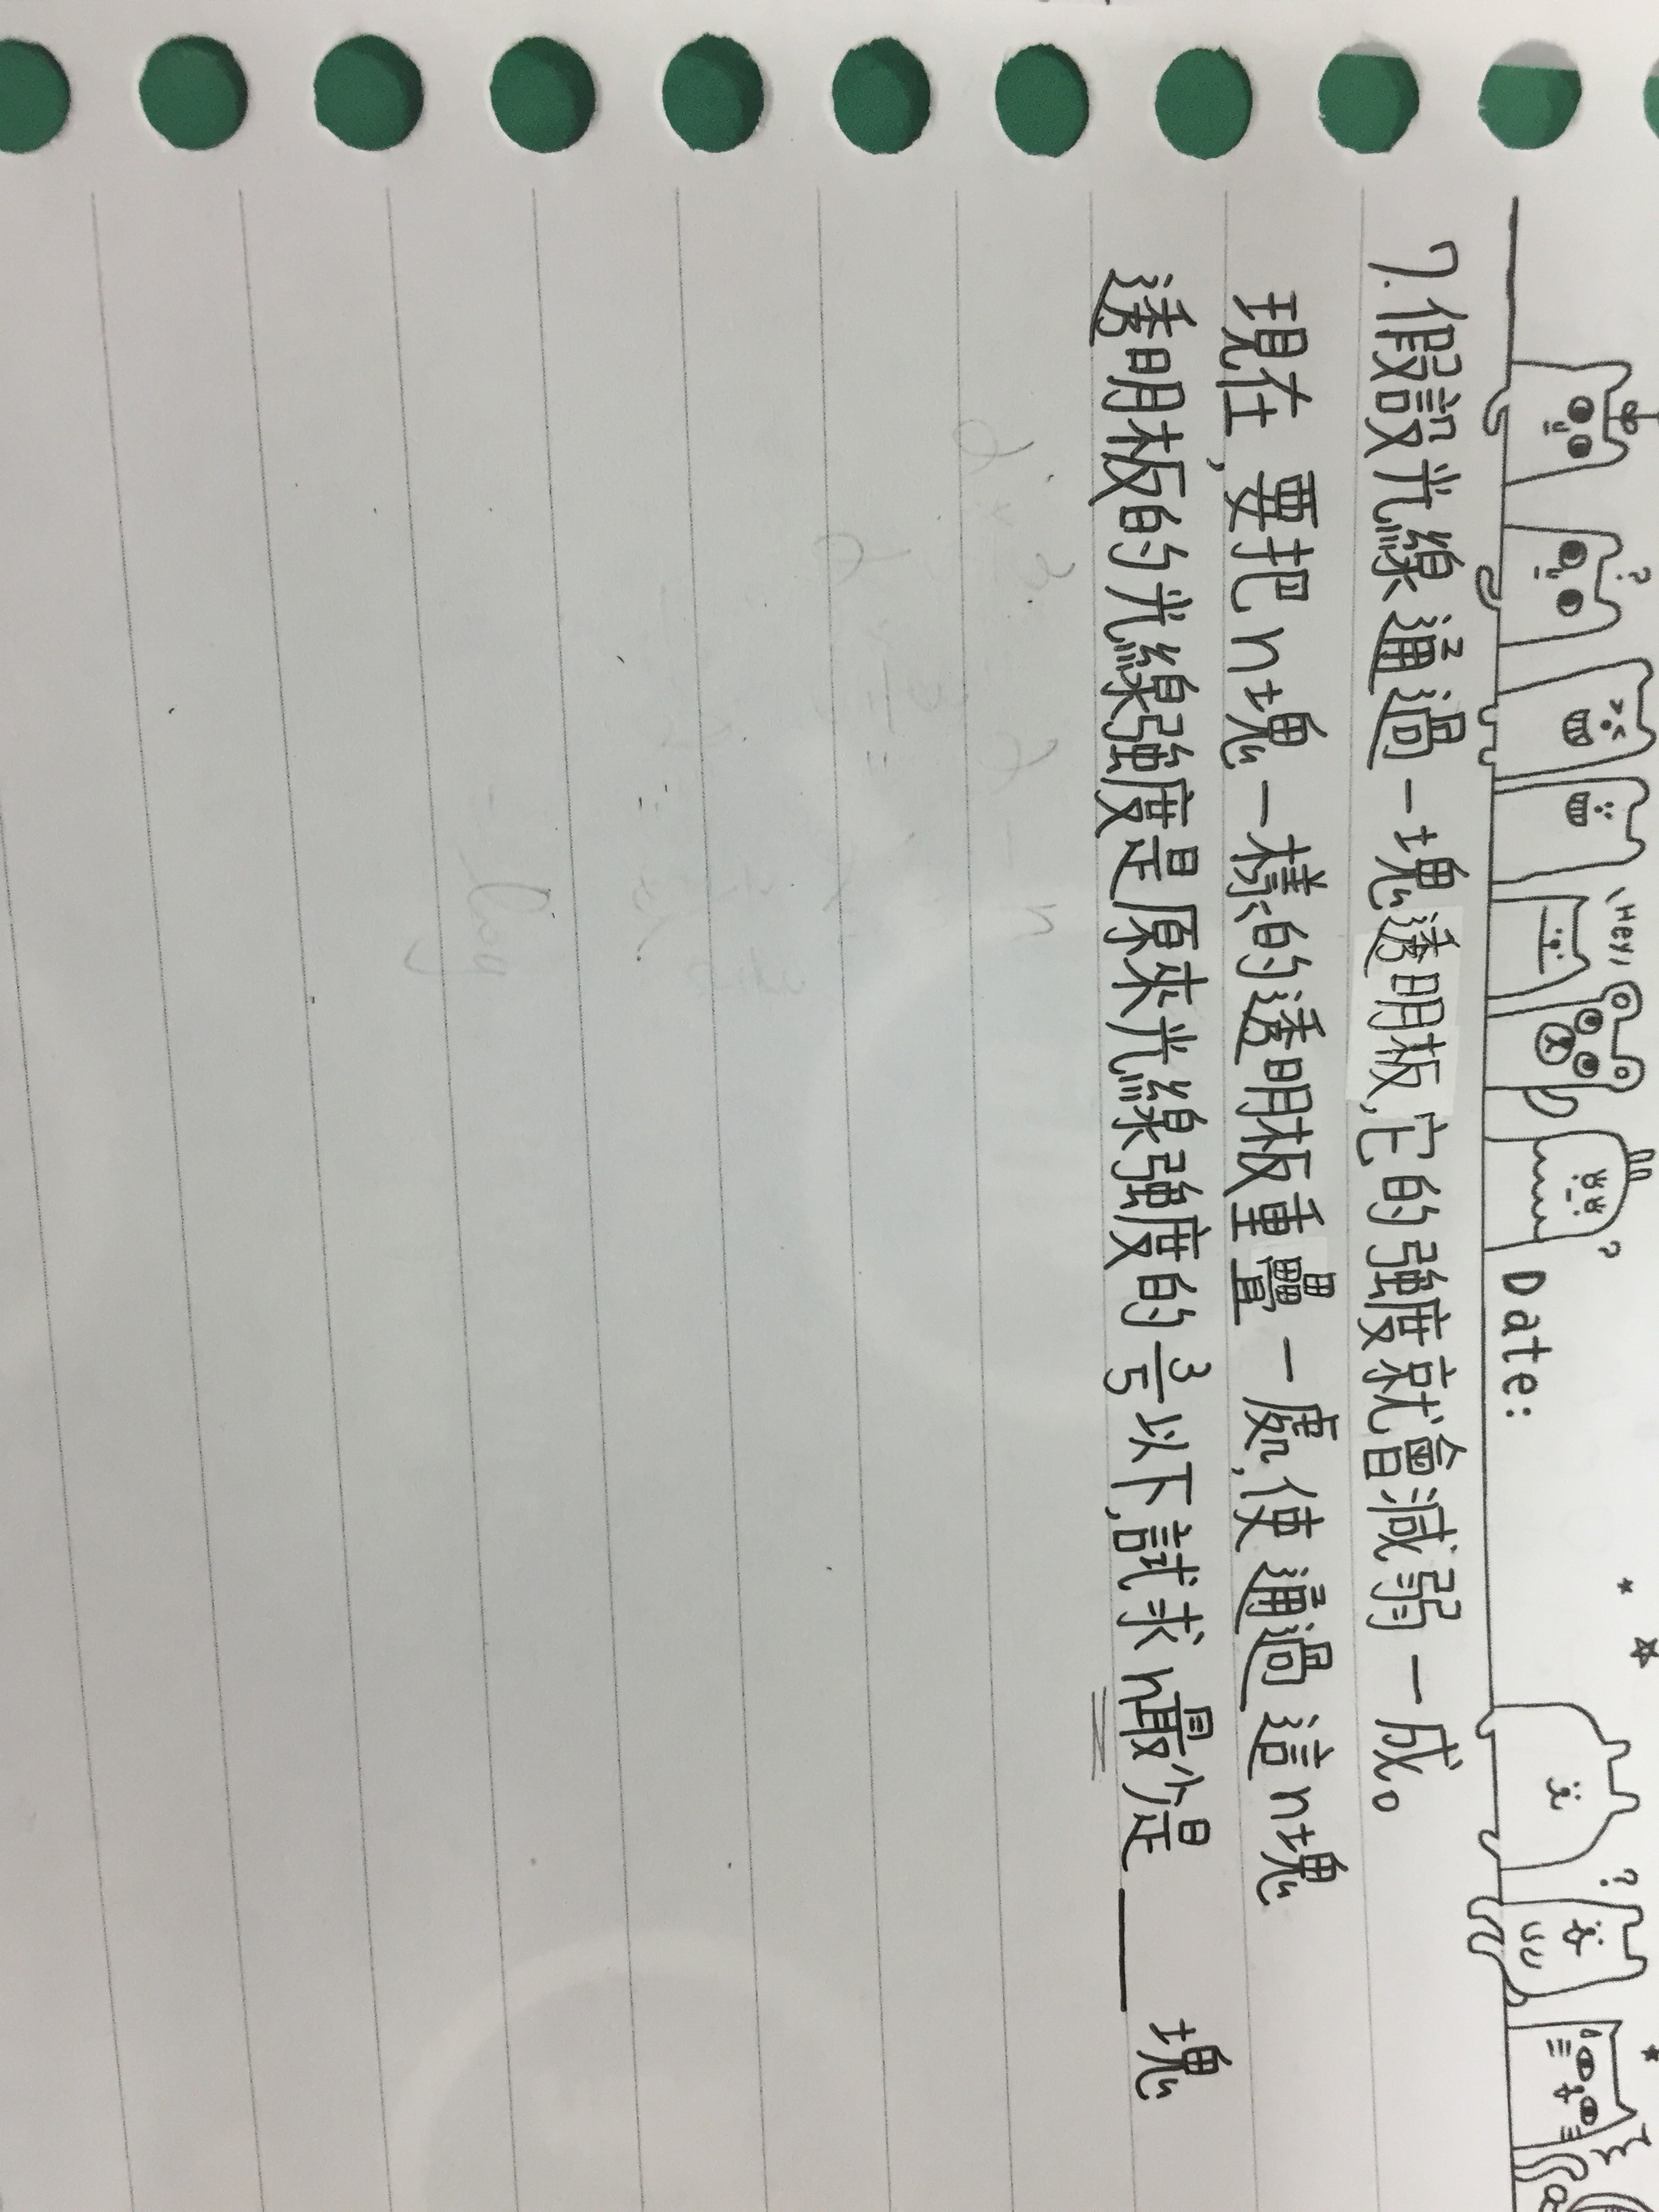 Hey,
Date:
7.假設光線通過一塊透明板,它的強度就會減弱一成。
現在,要把n塊一樣的透明板重疊一處,使通過這n塊
透明板的光線強度是原來光線強度的3/5以下,試求n最少是____塊